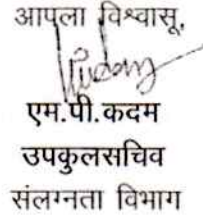 आपला विश्वासू,
एम.पी.कदम
उपकुलसचिव
संलग्नता विभाग